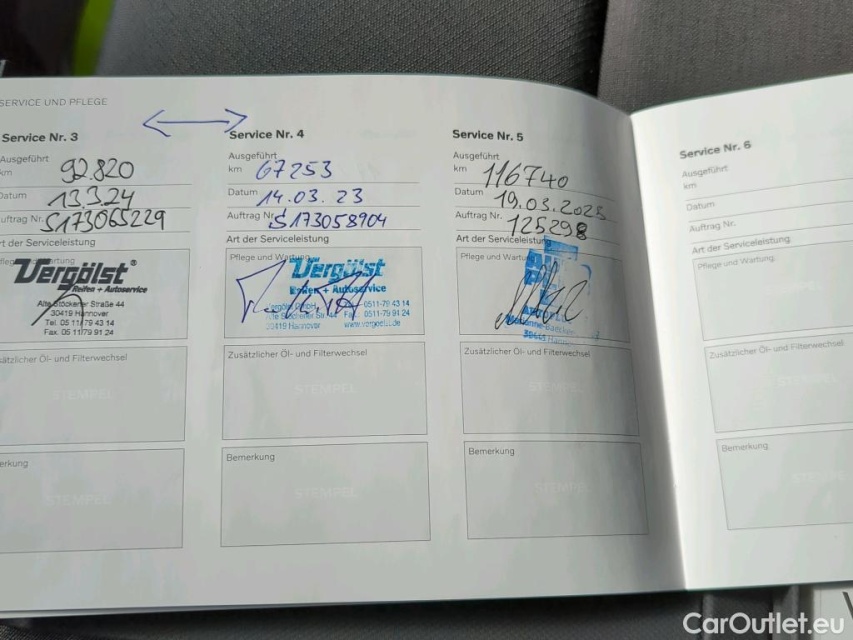 SERVICE UND PFLEGE
Service Nr. 3
Ausgeführt
km 92.820
Datum 13.3.24
Auftrag Nr. S173065229
Art der Serviceleistung
Vergölst®
Reifen + Autoservice
Alte Stöckener Straße 44
30419 Hannover
Tel. 05 11/79 43 14
Fax. 05 11/79 91 24
Zusätzlicher Öl- und Filterwechsel
STEMPEL
Bemerkung
STEMPEL
Service Nr. 4
Ausgeführt
km 67253
Datum 14.03.23
Auftrag Nr. S173058904
Art der Serviceleistung
Pflege und Wartung
Vergölst
Reifen + Autoservice
Vergölst GmbH
0511-79 43 14
0511-79 91 24
30419 Hannover www.vergoelst.de
Zusätzlicher Öl- und Filterwechsel
STEMPEL
Bemerkung
STEMPEL
Service Nr. 5
Ausgeführt
km 116740
Datum 19.03.2025
Auftrag Nr. 125298
Art der Serviceleistung
Pflege und Wartung
Zusätzlicher Öl- und Filterwechsel
STEMPEL
Bemerkung
STEMPEL
Service Nr. 6
Ausgeführt
km
Datum
Auftrag Nr.
Art der Serviceleistung
Pflege und Wartung
Zusätzlicher Öl- und Filterwechsel
Bemerkung
CarOutlet.eu